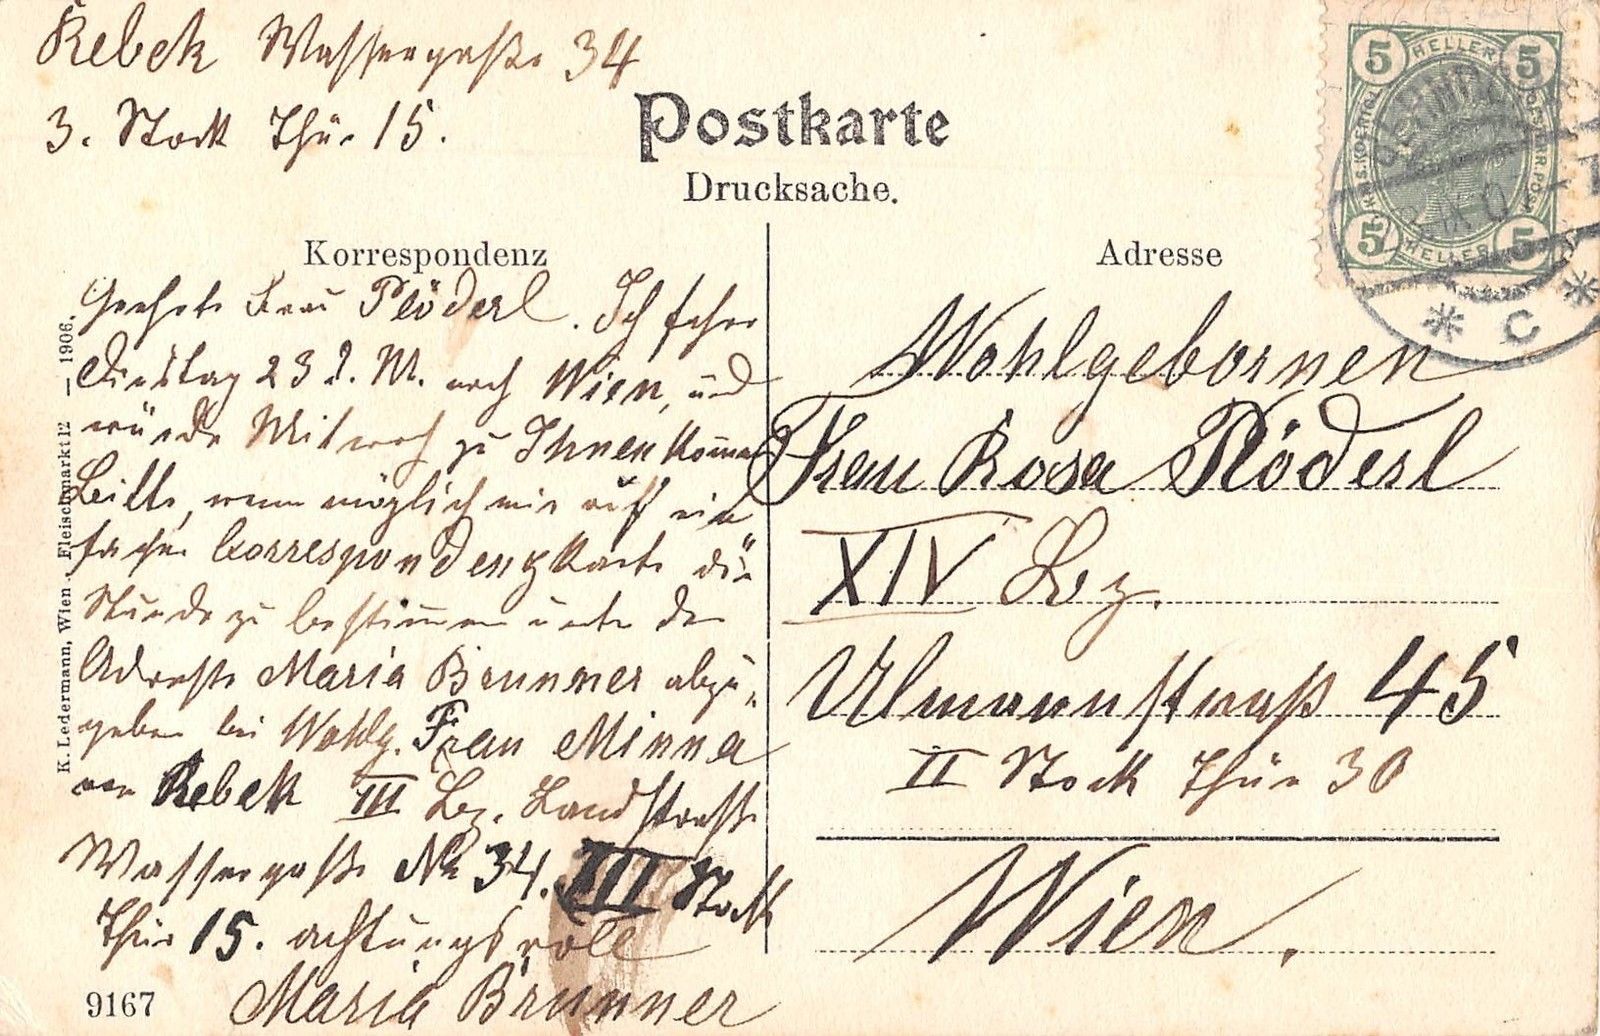 Rebek Wassergaße 34
3. Stock Thür 15.
Postkarte
Drucksache.
Korrespondenz
Geehrte Frau Plöderl. Ich fahre
Dienstag 23 d. M. nach Wien, und
würde Mitwoch zu Ihnen kommen
Bitte, wenn möglich mir auf ein
facher Correspondenzkarte die
Stunde zu bestimmen unter der
Adresse Maria Brunner abzu„
geben bei Wohlg. Frau Minna
von Rebek III Bez. Landstraße
Wassergaße No 34. III Stock
Thür 15. achtungsvoll
Maria Brunner
K. Ledermann, Wien I., Fleischmarkt 12 — 1906.
9167
Adresse
Wohlgebornen
Frau Rosa Plöderl
XIV Bez.
Ulmannstraß 45
II Stock Thür 30
Wien.
5 HELLER 5
5 HELLER 5
* C *